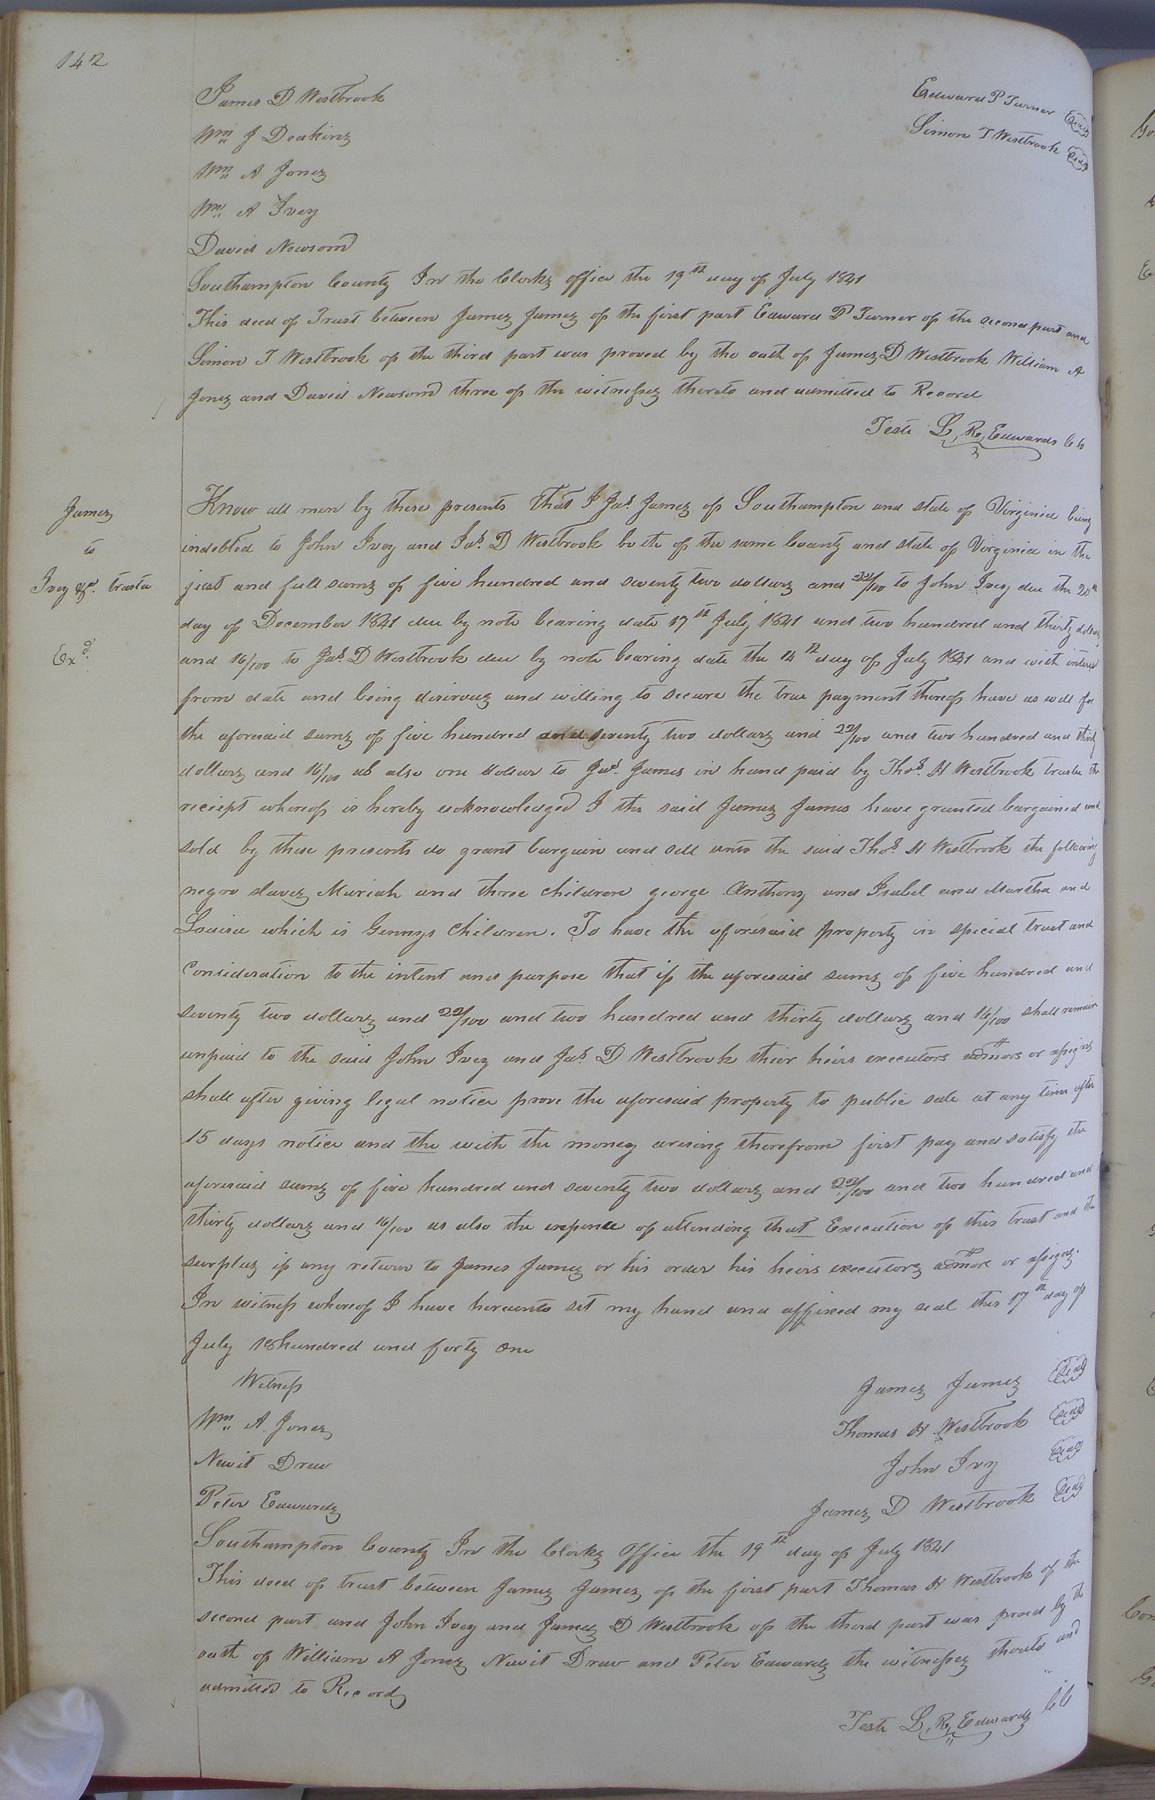 142
James D Westbrook Edward P Turner Seal
Wm J Deakins Simon T Westbrook Seal
Wm A Jones
Wm A Ivey
David Newsom
Southampton County In the Clerks office the 19th day of July 1841
This deed of Trust between James James of the first part Edward P Turner of the second part and
Simon T Westbrook of the third part was proved by the oath of James D Westbrook William A
Jones and David Newsom three of the witnesses thereto and admitted to Record
Teste L. R. Edwards CC
James
to
Ivey &c. trustee
Exd.
Know all men by these presents that I Jas. James of Southampton and state of Virginia being
indebted to John Ivey and Jas. D Westbrook both of the same County and state of Virginia in the
just and full sums of five hundred and seventy two dollars and 22/100 to John Ivey due the 25th
day of December 1841 due by note bearing date 17th July 1841 and two hundred and thirty dollars
and 16/100 to Jas. D Westbrook due by note bearing date the 14th day of July 1841 and with interest
from date and being desirous and willing to secure the true payment thereof have as well for
the aforesaid sums of five hundred and seventy two dollars and 22/100 and two hundred and thirty
dollars and 16/100 as also one dollar to Jas. James in hand paid by Thos. H Westbrook trustee the
reciept whereof is hereby acknowledged I the said James James have granted bargained and
sold by these presents do grant bargain and sell unto the said Thos. H Westbrook the following
negro slaves Mariah and three children george Anthony and Isabel and Martha and
Louisa which is Gennys Children. To have the aforesaid property in special trust and
Consideration to the intent and purpose that if the aforesaid sums of five hundred and
seventy two dollars and 22/100 and two hundred and thirty dollars and 16/100 shall remain
unpaid to the said John Ivey and Jas. D Westbrook their heirs executors admors or assigns
shall after giving legal notice prove the aforesaid property to public sale at any time after
15 days notice and the with the money arising therefrom first pay and satisfy the
aforesaid sums of five hundred and seventy two dollars and 22/100 and two hundred and
thirty dollars and 16/100 as also the expence of attending that Execution of this trust and the
surplus if any return to James James or his order his heirs executors admors or assigns.
In witness whereof I have hereunto set my hand and affixed my seal this 17th day of
July 18hundred and forty one
Witness James James Seal
Wm A. Jones Thomas H Westbrook Seal
Newit Drew John Ivy Seal
Peter Edwards James D Westbrook Seal
Southampton County In the Clerks Office the 19th day of July 1841
This deed of trust between James James of the first part Thomas H Westbrook of the
second part and John Ivey and James D Westbrook of the third part was proved by the
oath of William A Jones Newit Drew and Peter Edwards the witnesses thereto and
admitted to Record
Teste L. R. Edwards CC